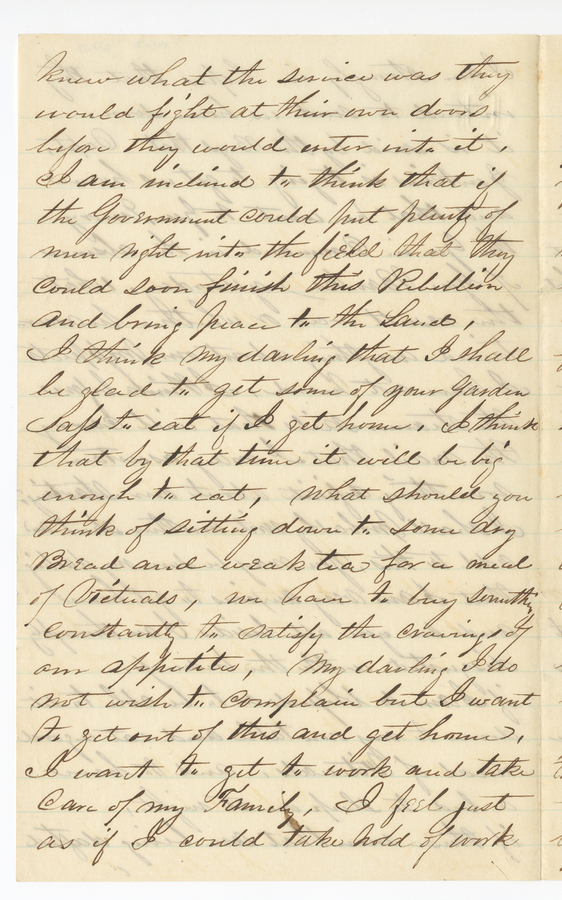 knew what the service was they
would fight at their own doors
before they would enter into it.
I am inclined to think that if
the Government could put plenty of
men right into the field that they
could soon finish this Rebellion
and bring peace to the Land,
I think my darling that I shall
be glad to get some of your Garden
Safs to eat if I get home. I think
that by that time it will be big
enough to eat, what should you
think of sitting down to some dry
Bread and weak tea for a meal
of Victuals, we have to buy something
constantly to satisfy the cravings of
our appetites, My darling I do
not wish to complain but I want
to get out of this and get home,
I want to get to work and take
Care of my Family, I feel just
as if I could take hold of work